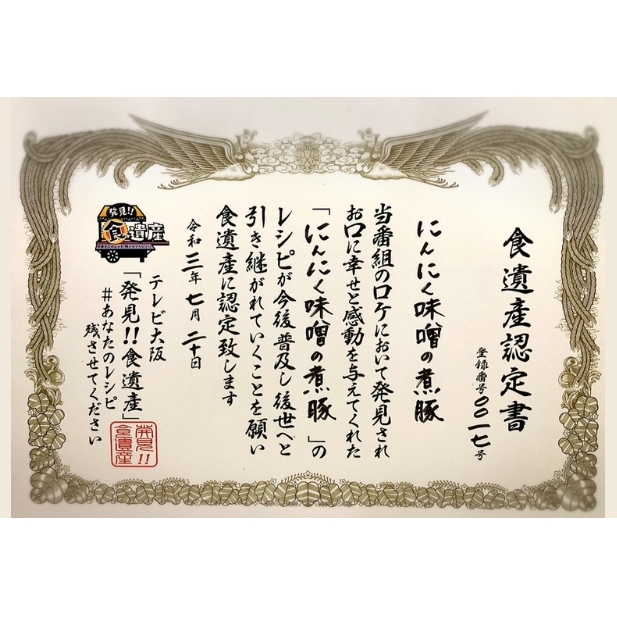 食遺産認定書
登録番号〇〇一七号
にんにく味噌の煮豚
当番組のロケにおいて発見され
お口に幸せと感動を与えてくれた
「にんにく味噌の煮豚」の
レシピが今後普及し後世へと
引き継がれていくことを願い
食遺産に認定致します
令和三年七月二十日
発見!!
食遺産
テレビ大阪
「発見!!食遺産」
#あなたのレシピ
残させてください
発見!!
食遺産